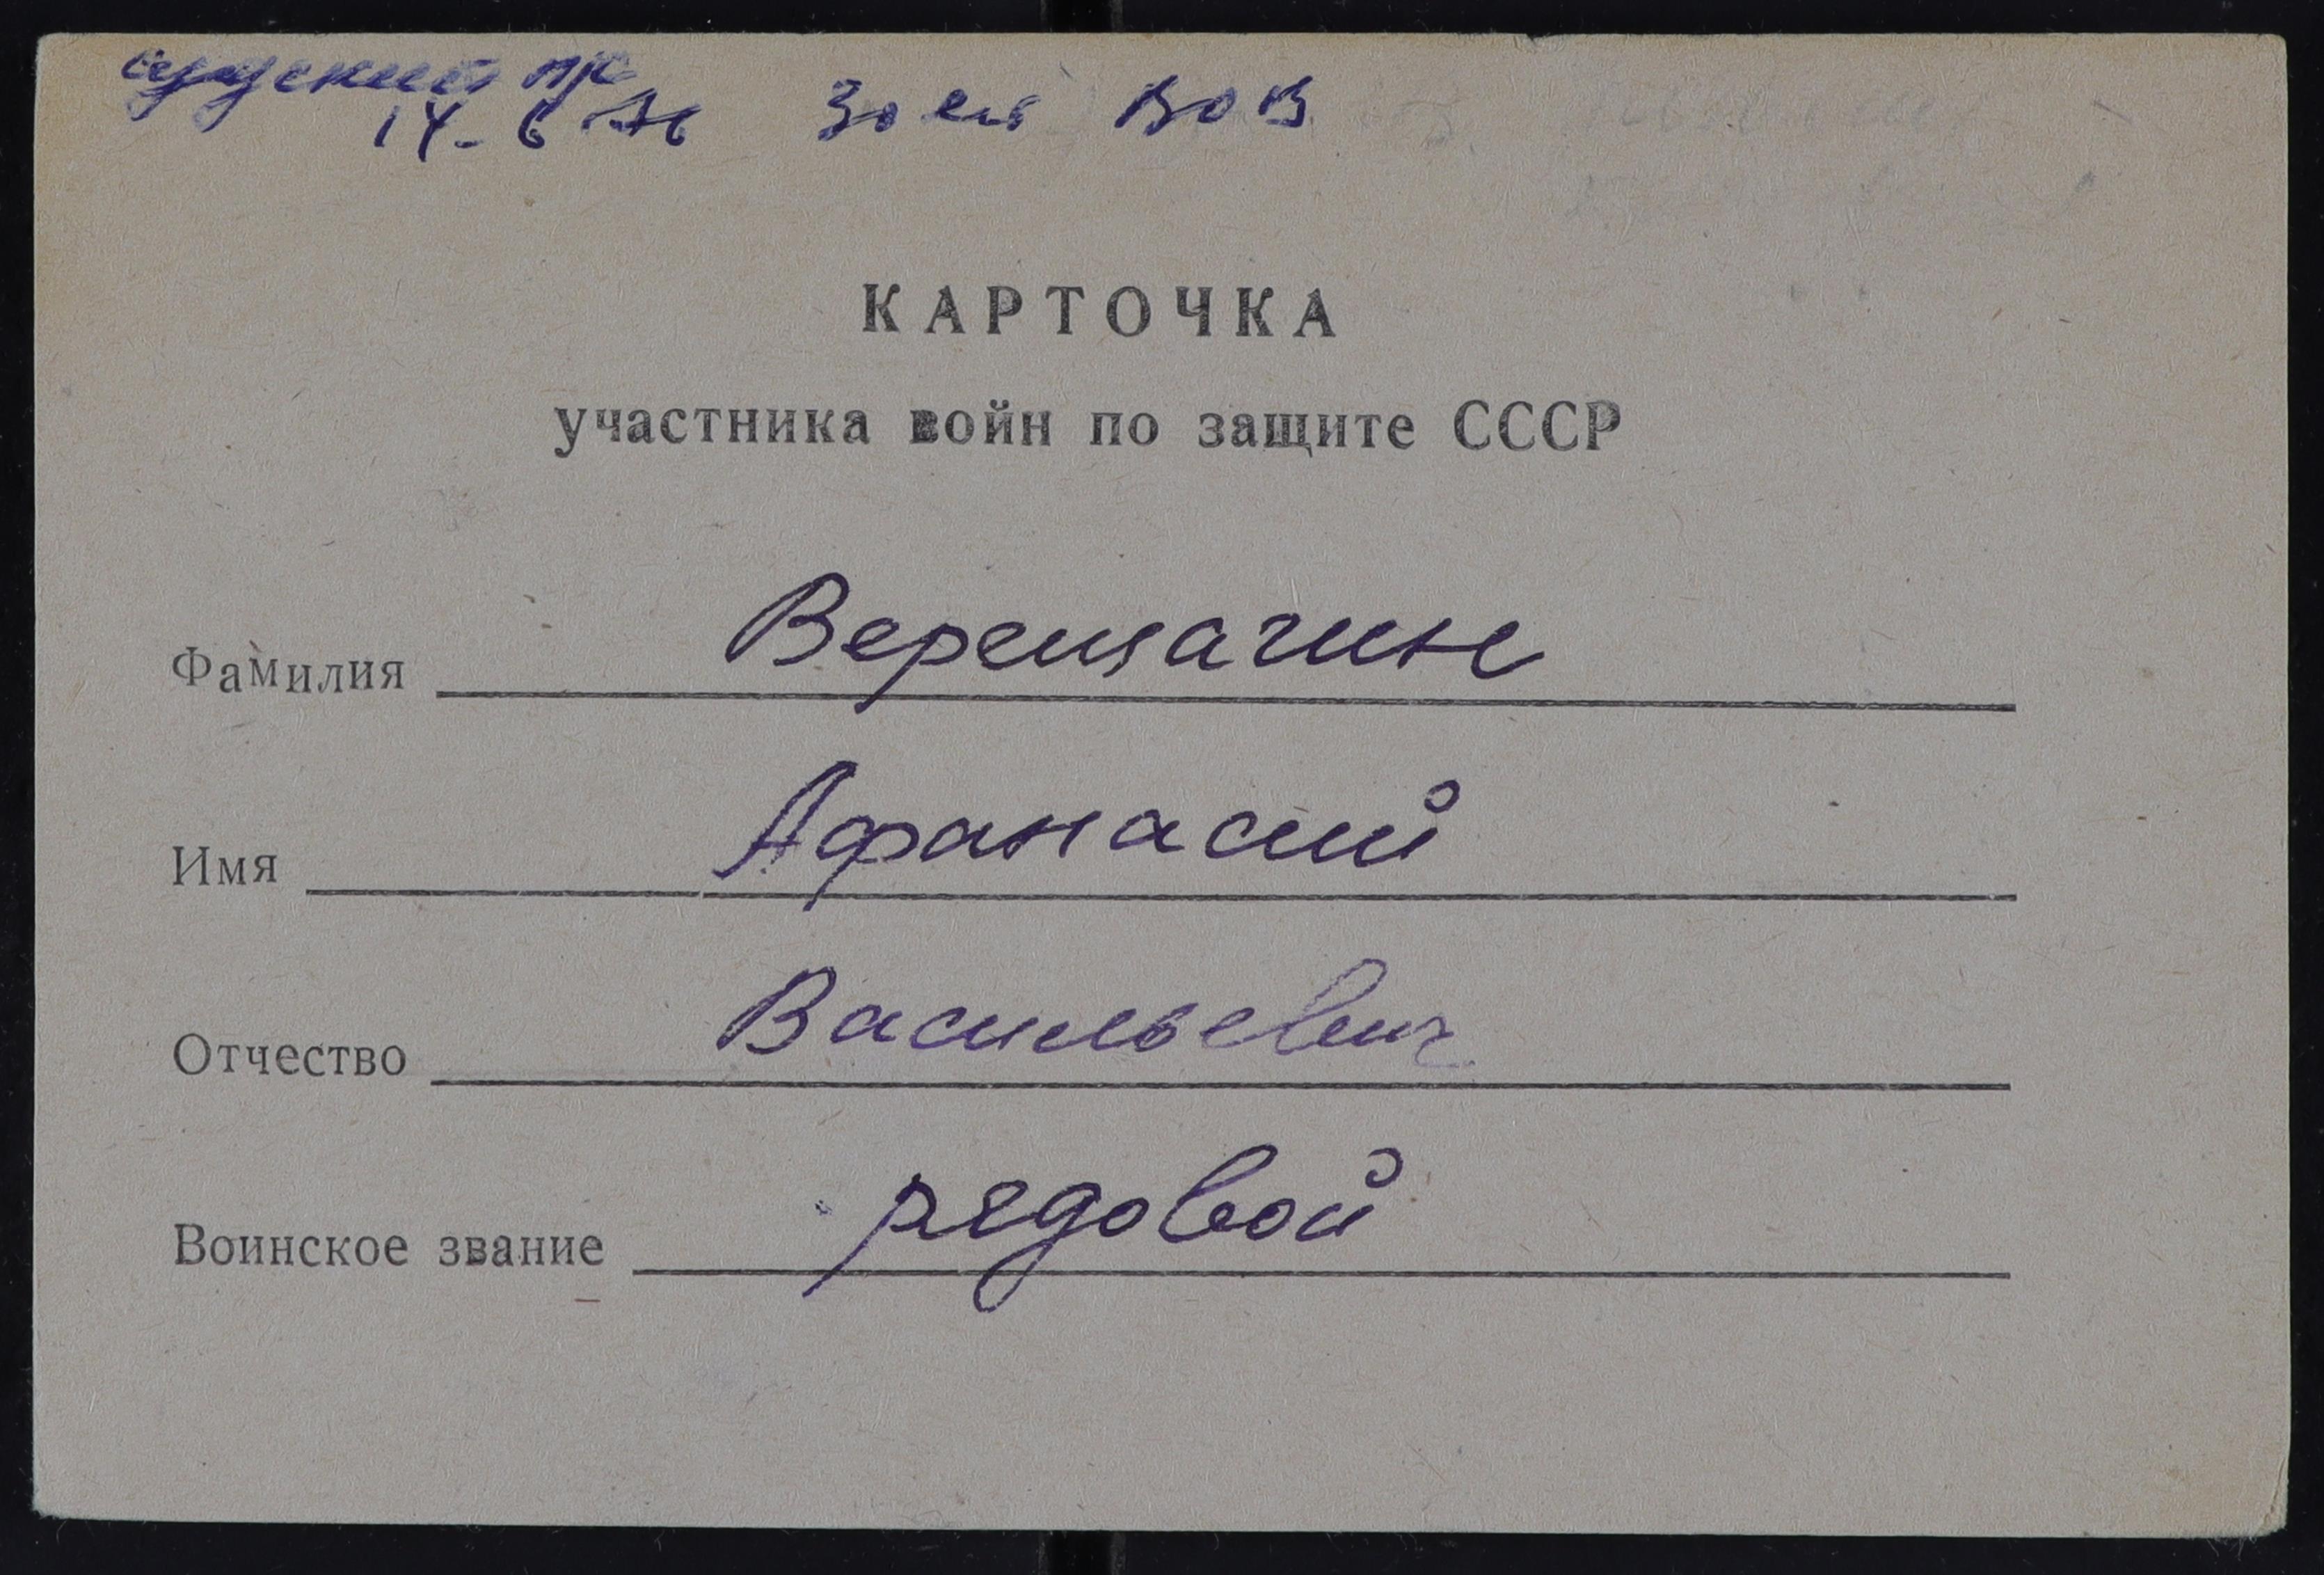 14-6-76 Зоея ВОВ
КАРТОЧКА
участника войн по защите СССР
Фамилия Верещагин
Имя Афанасий
Отчество Васильевич
Воинское звание рядовой